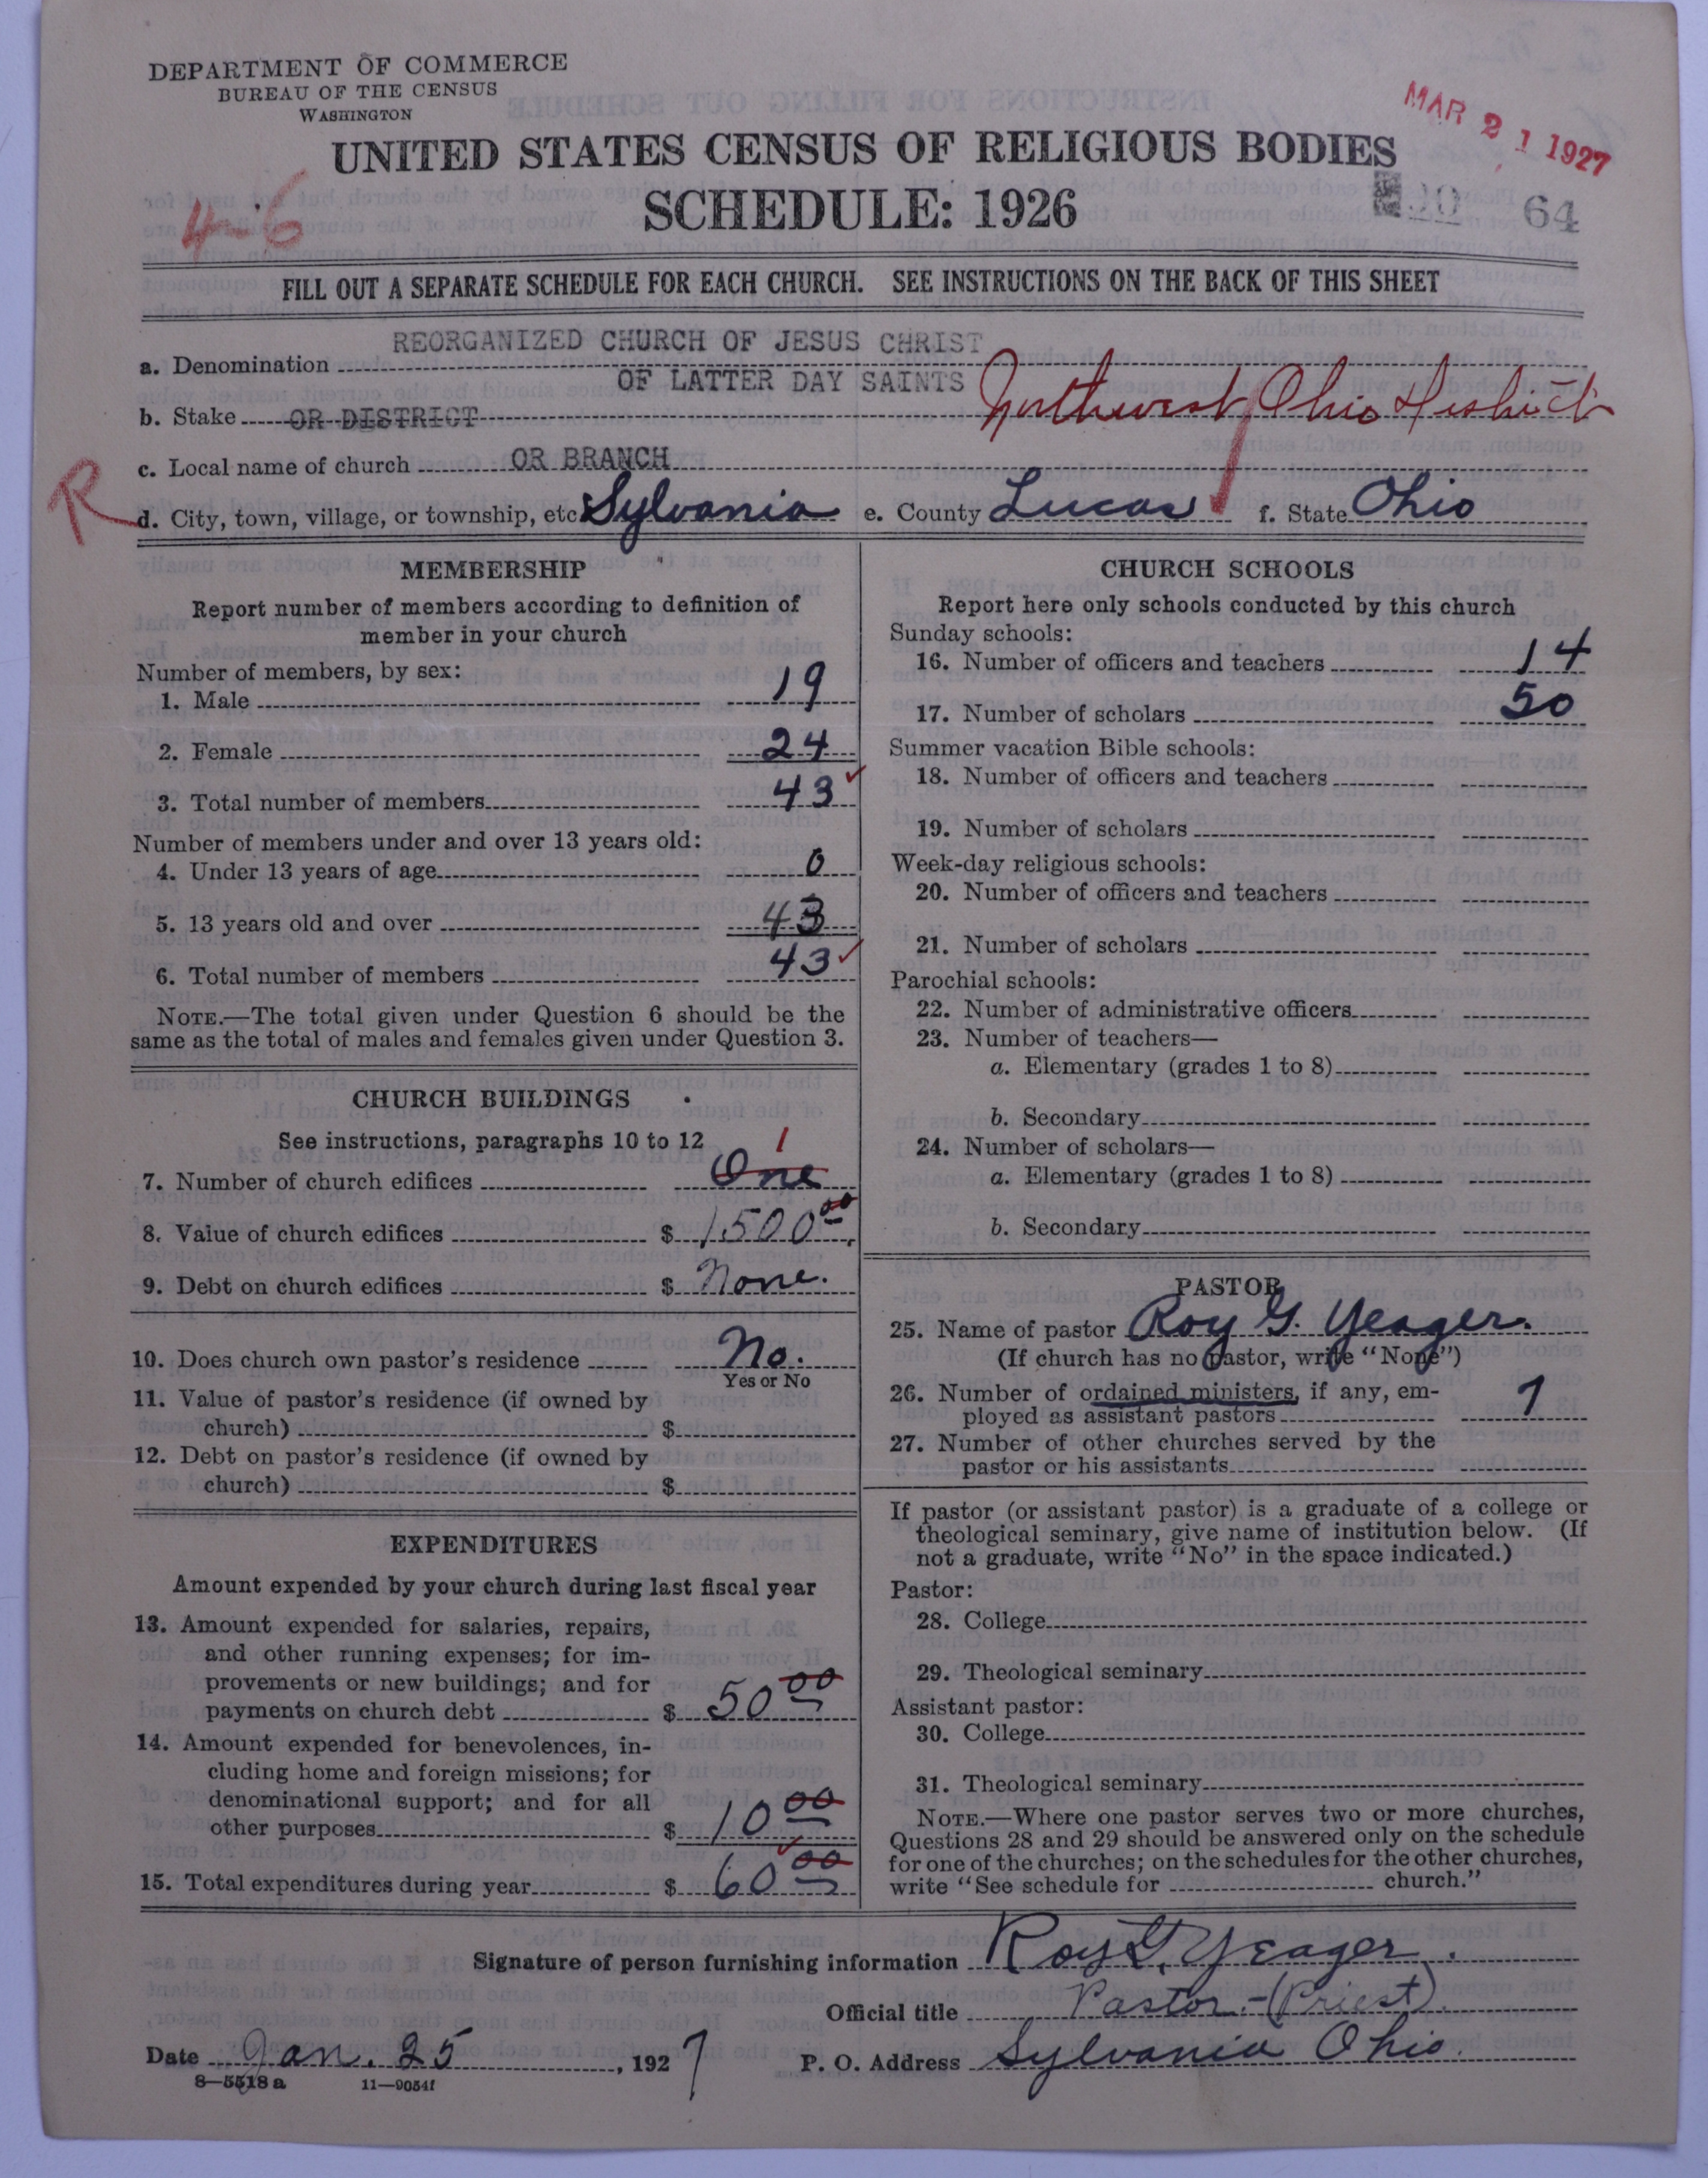 DEPARTMENT OF COMMERCE
BUREAU OF THE CENSUS
WASHINGTON
MAR 21 1927
UNITED STATES CENSUS OF RELIGIOUS BODIES
SCHEDULE: 1926
4-6
20 64
FILL OUT A SEPARATE SCHEDULE FOR EACH CHURCH. SEE INSTRUCTIONS ON THE BACK OF THIS SHEET
a. Denomination REORGANIZED CHURCH OF JESUS CHRIST
OF LATTER DAY SAINTS
b. Stake OR DISTRICT Northwest Ohio District
c. Local name of church OR BRANCH
R
d. City, town, village, or township, etc Sylvania e. County Lucas f. State Ohio
MEMBERSHIP
Report number of members according to definition of
member in your church
Number of members, by sex:
1. Male 19
2. Female 24
3. Total number of members 43
Number of members under and over 13 years old:
4. Under 13 years of age 0
5. 13 years old and over 43
6. Total number of members 43
NOTE.—The total given under Question 6 should be the
same as the total of males and females given under Question 3.
CHURCH BUILDINGS
See instructions, paragraphs 10 to 12 1
7. Number of church edifices One
8. Value of church edifices $ 1500 00
9. Debt on church edifices $ None.
10. Does church own pastor's residence No.
Yes or No
11. Value of pastor's residence (if owned by
church) $
12. Debt on pastor's residence (if owned by
church) $
EXPENDITURES
Amount expended by your church during last fiscal year
13. Amount expended for salaries, repairs,
and other running expenses; for im-
provements or new buildings; and for
payments on church debt $ 50 00
14. Amount expended for benevolences, in-
cluding home and foreign missions; for
denominational support; and for all
other purposes $ 10 00
15. Total expenditures during year $ 60 00
CHURCH SCHOOLS
Report here only schools conducted by this church
Sunday schools:
16. Number of officers and teachers 14
17. Number of scholars 50
Summer vacation Bible schools:
18. Number of officers and teachers
19. Number of scholars
Week-day religious schools:
20. Number of officers and teachers
21. Number of scholars
Parochial schools:
22. Number of administrative officers
23. Number of teachers—
a. Elementary (grades 1 to 8)
b. Secondary
24. Number of scholars—
a. Elementary (grades 1 to 8)
b. Secondary
PASTOR
25. Name of pastor Roy G. Yeager.
(If church has no pastor, write "None")
26. Number of ordained ministers, if any, em-
ployed as assistant pastors 1
27. Number of other churches served by the
pastor or his assistants
If pastor (or assistant pastor) is a graduate of a college or
theological seminary, give name of institution below. (If
not a graduate, write "No" in the space indicated.)
Pastor:
28. College
29. Theological seminary
Assistant pastor:
30. College
31. Theological seminary
NOTE.—Where one pastor serves two or more churches,
Questions 28 and 29 should be answered only on the schedule
for one of the churches; on the schedules for the other churches,
write "See schedule for church."
Signature of person furnishing information Roy G. Yeager.
Official title Pastor.-(Priest)
Date Jan. 25, 1927 P. O. Address Sylvania Ohio.
8—5518 a 11—9054f